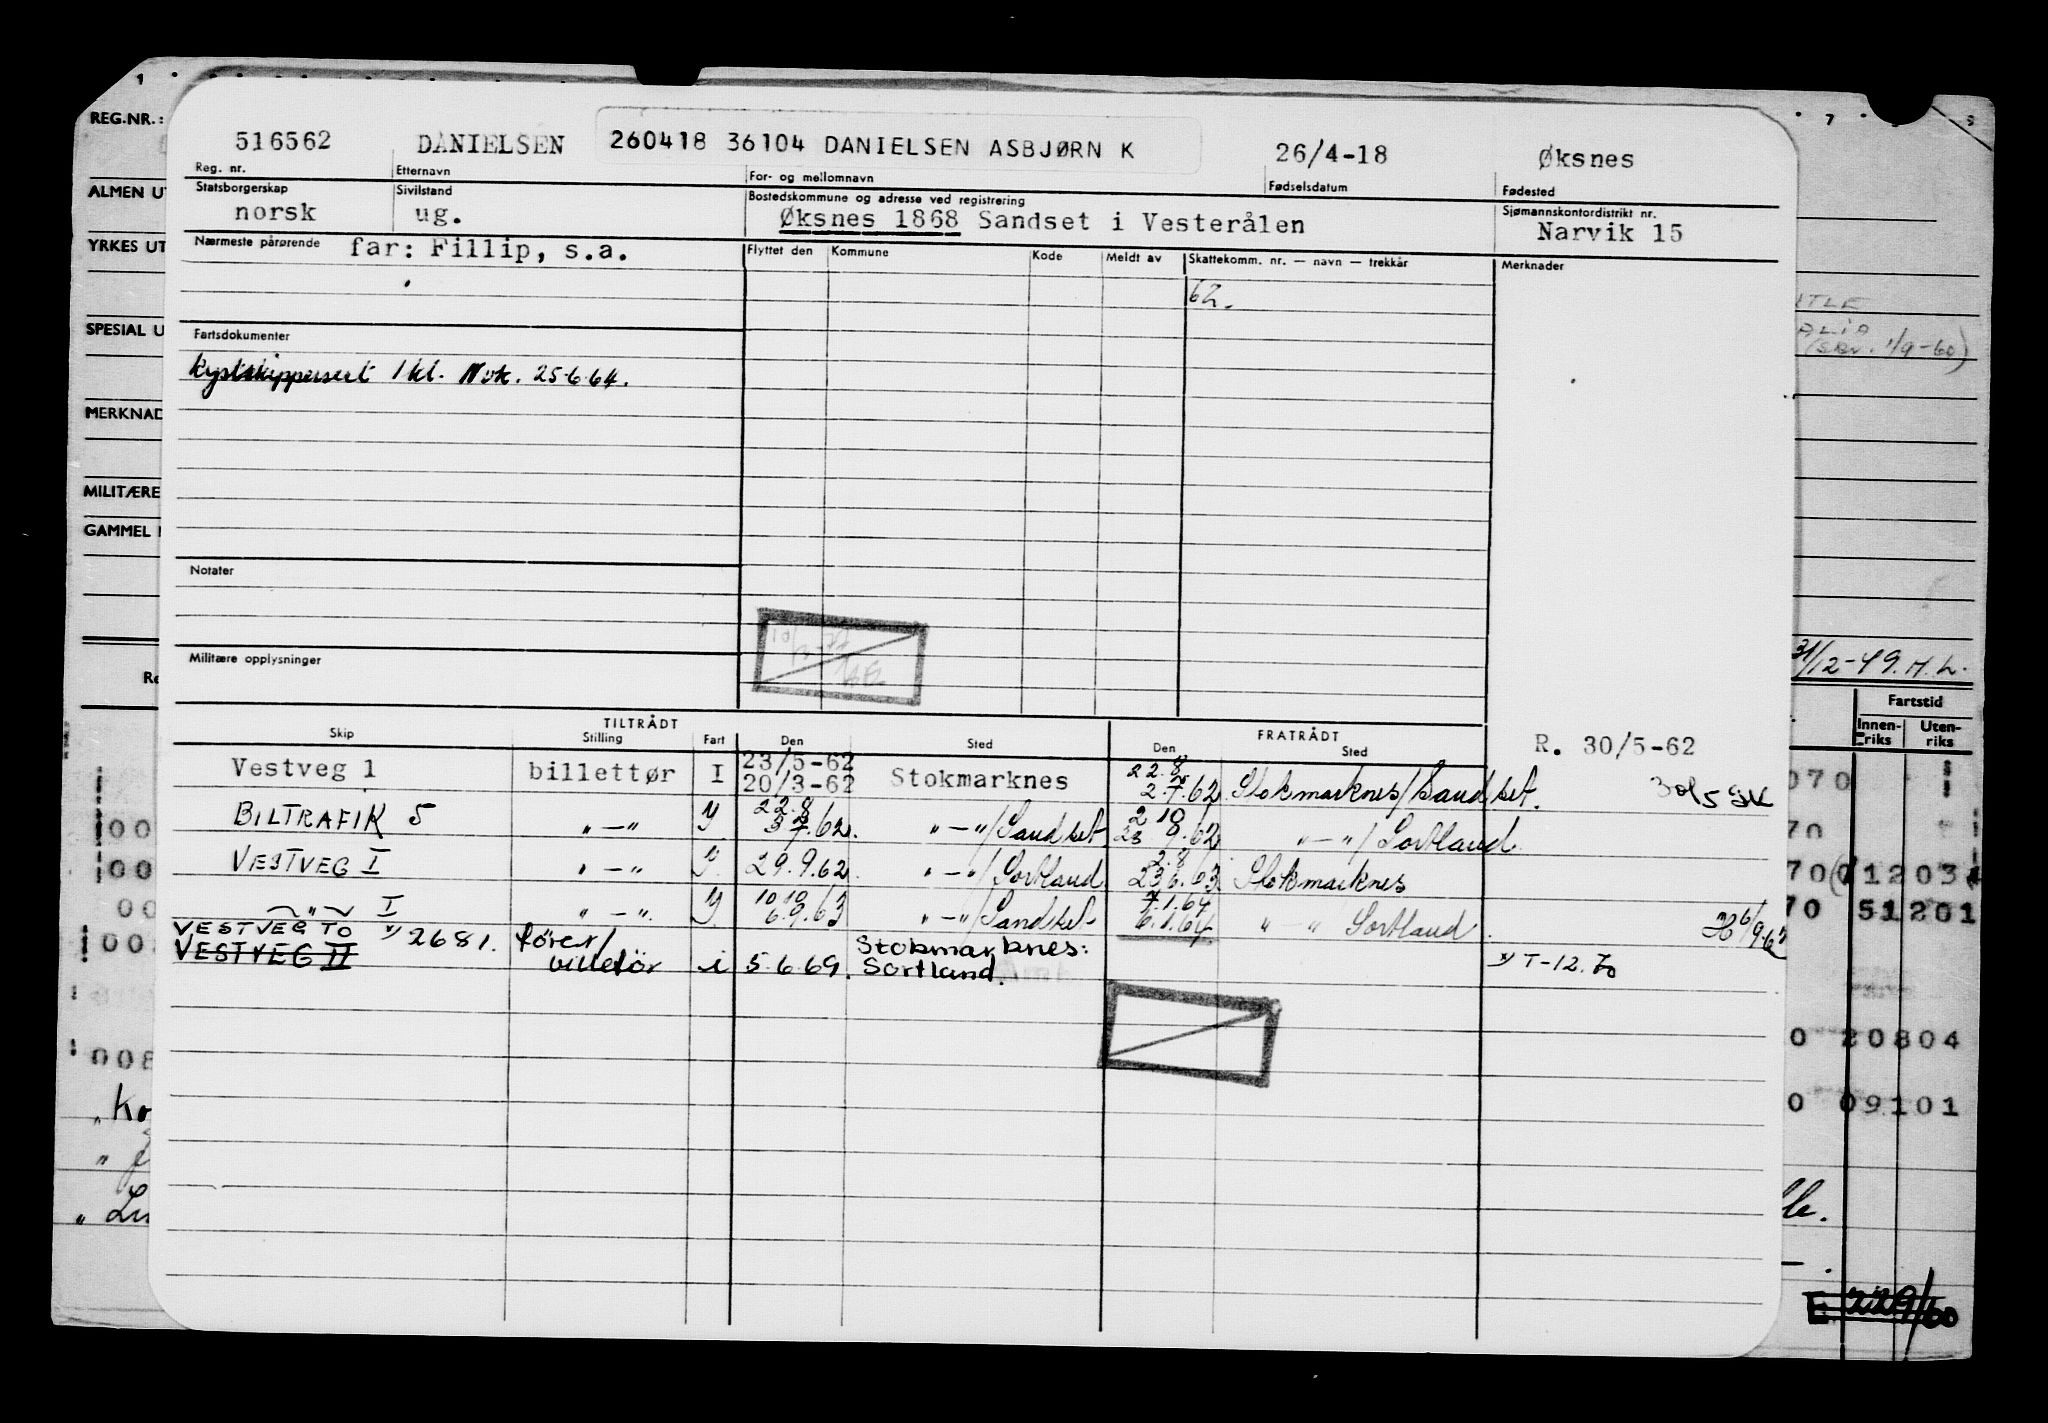 REG.NR.:
516562 DANIELSEN 260418 36104 DANIELSEN ASBJØRN K 26/4-18 Øksnes
Reg. nr. Etternavn For- og mellomnavn Fødselsdatum Fødested
ALMEN UT
Statsborgerskap Sivilstand Bostedskommune og adresse ved registrering Sjømannskontordistrikt nr.
norsk ug. Øksnes 1868 Sandset i Vesterålen Narvik 15
YRKES UT
Nærmeste pårørende far: Fillip, s.a. Flyttet den Kommune Kode Meldt av Skattekomm. nr. — navn — trekkår Merknader
62.
SPESIAL U
Fartsdokumenter
(sev. 1/9-60)
kystskippersert 1 kl. Nvk. 25.6.64.
MERKNAD
MILITÆRE
GAMMEL
Notater
Militære opplysninger
31/12-49. H.L.
Fartstid
Innenriks Utenriks
TILTRÅDT FRATRÅDT
Skip Stilling Fart Den Sted Den Sted R. 30/5-62
Vestveg 1 billettør I 23/5-62 20/3-62 Stokmarknes 22.8 2.7.62 Stokmarknes/Sandset. 30/5 070
BILTRAFIK 5 "—" 22.8 3.7.62. "—"/Sandset 2 10 23 9.62 "—"/Sortland 70
VESTVEG I "—" 29.9.62. "—"/Sortland 2.8 23.6.63 Stokmarknes 70 1203
"  I "—". 10 10 6.9.63 "—"/Sandset 7.1.64 6.1.64. " — " Sortland. 70 51201
VESTVEG TO x) 2681. fører/ Stokmarknes:
VESTVEG II billetør i 5.6.69. Sortland. x) T-12.70
0 20804
008
0 09101
E 229/60